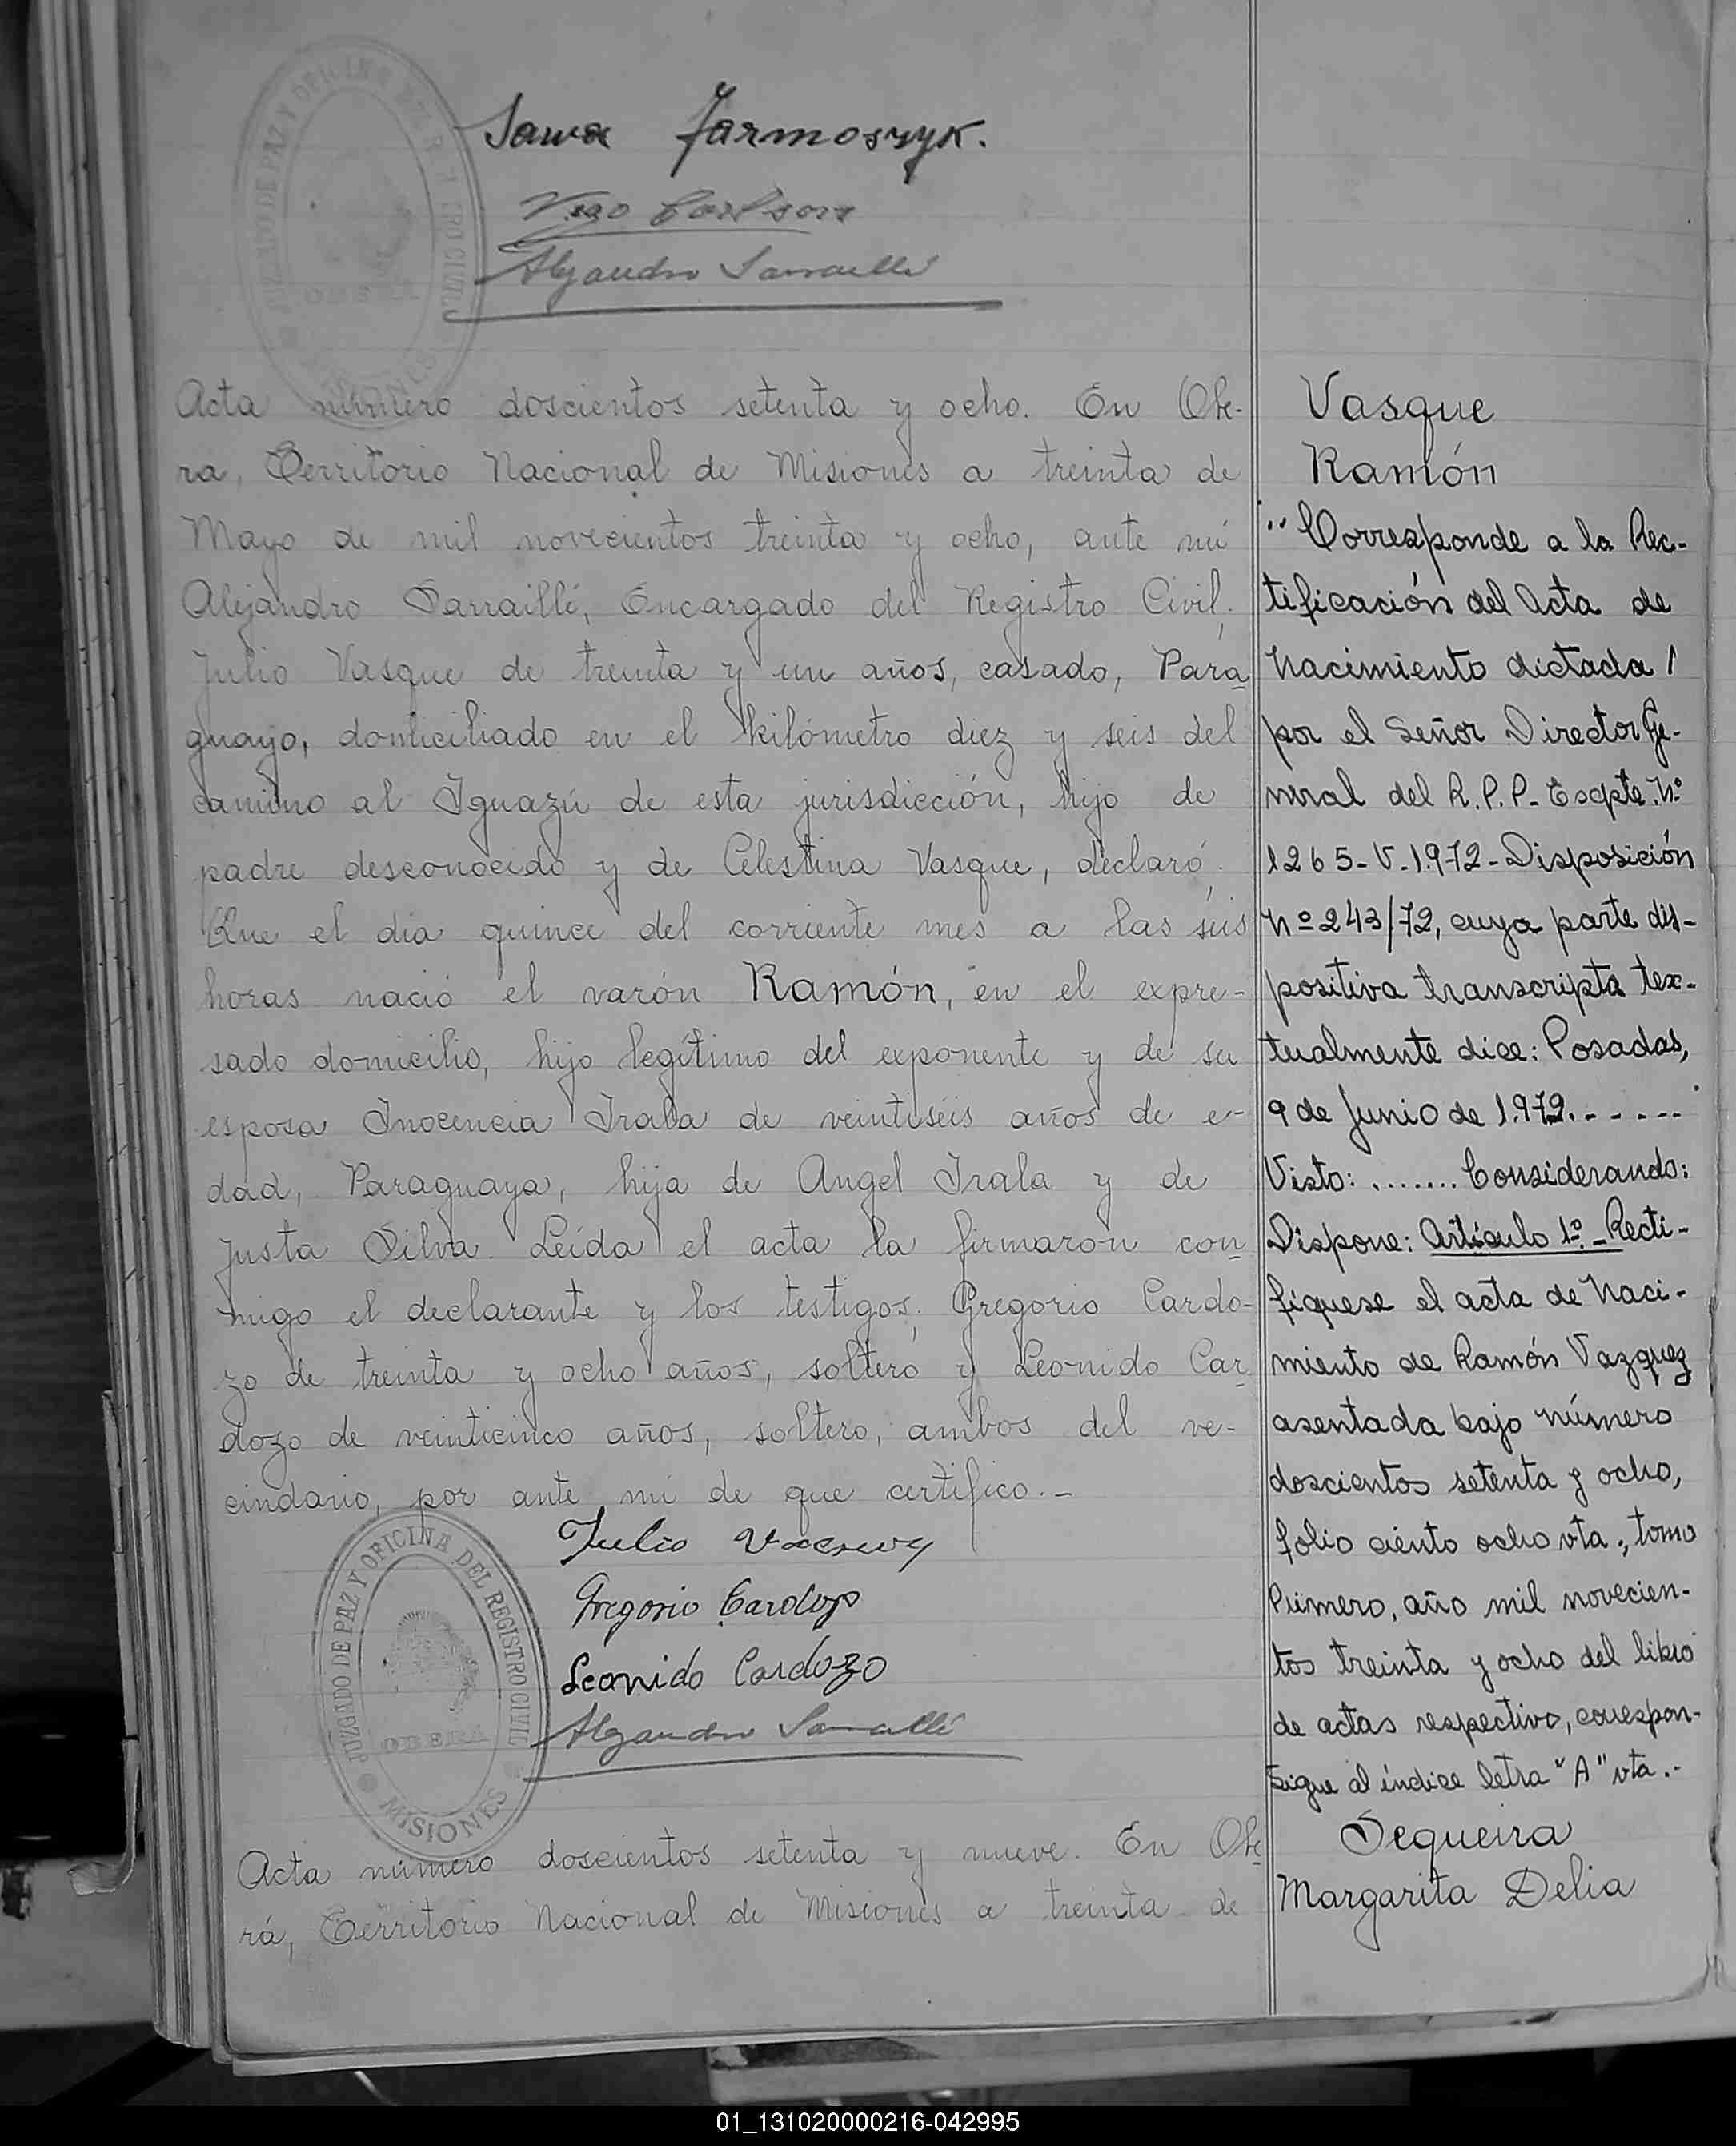 Sawa Jarmoszyk.
Alejandro Sarraillé
Acta número doscientos setenta y ocho. En Obe-
ra, Territorio Nacional de Misiones a treinta de
Mayo de mil novecientos treinta y ocho, ante mí
Alejandro Sarraillé, Encargado del Registro Civil,
Julio Vasque de treinta y un años, casado, Para
guayo, domiciliado en el kilómetro diez y seis del
camino al Iguazú de esta jurisdicción, hijo de
padre desconocido y de Celestina Vasque, declaró:
Que el día quince del corriente mes a las seis
horas nació el varón Ramón, en el expre-
sado domicilio, hijo legítimo del exponente y de su
esposa Inocencia Irala de veintiséis años de e-
dad, Paraguaya, hija de Angel Irala y de
Justa Silva. Leída el acta la firmaron con
migo el declarante y los testigos: Gregorio Cardo-
zo de treinta y ocho años, soltero y Leonido Car
dozo de veinticinco años, soltero, ambos del ve-
cindario, por ante mí de que certifico.-
Julio
Gregorio Cardozo
Leonido Cardozo
Alejandro Sarraillé
JUZGADO DE PAZ Y OFICINA DEL REGISTRO CIVIL
OBERA
MISIONES
Acta número doscientos setenta y nueve. En Obe
rá, Territorio Nacional de Misiones a treinta de
Vasque
Ramón
"Corresponde a la Rec-
tificación del Acta de
Nacimiento dictada /
por el Señor Director Ge-
neral del R.P.P.- Expte. Nº
1265-V-1972-Disposición
Nº 243/72, cuya parte dis-
positiva transcripta tex-
tualmente dice: Posadas,
9 de Junio de 1.972.------
Visto: ....... Considerando:
Dispone: Artículo 1º.-Recti-
fíquese el acta de Naci-
miento de Ramón Vazquez
asentada bajo número
doscientos setenta y ocho,
folio ciento ocho vta., tomo
Primero, año mil novecien-
tos treinta y ocho del libro
de actas respectivo, correspon-
Sigue al índice letra "A" vta.-
Sequeira
Margarita Delia
01_131020000216-042995